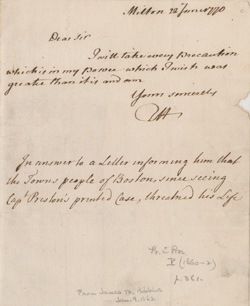 Milton 22 June 1770
Dear Sir
I will take every Precaution
which is in my Power which I wish was
greater than it is and am
Yours sincerely
TH
In answer to a Letter informing him that
the Towns people of Boston, since seeing
Capt Preston's printed Case, threatned his Life